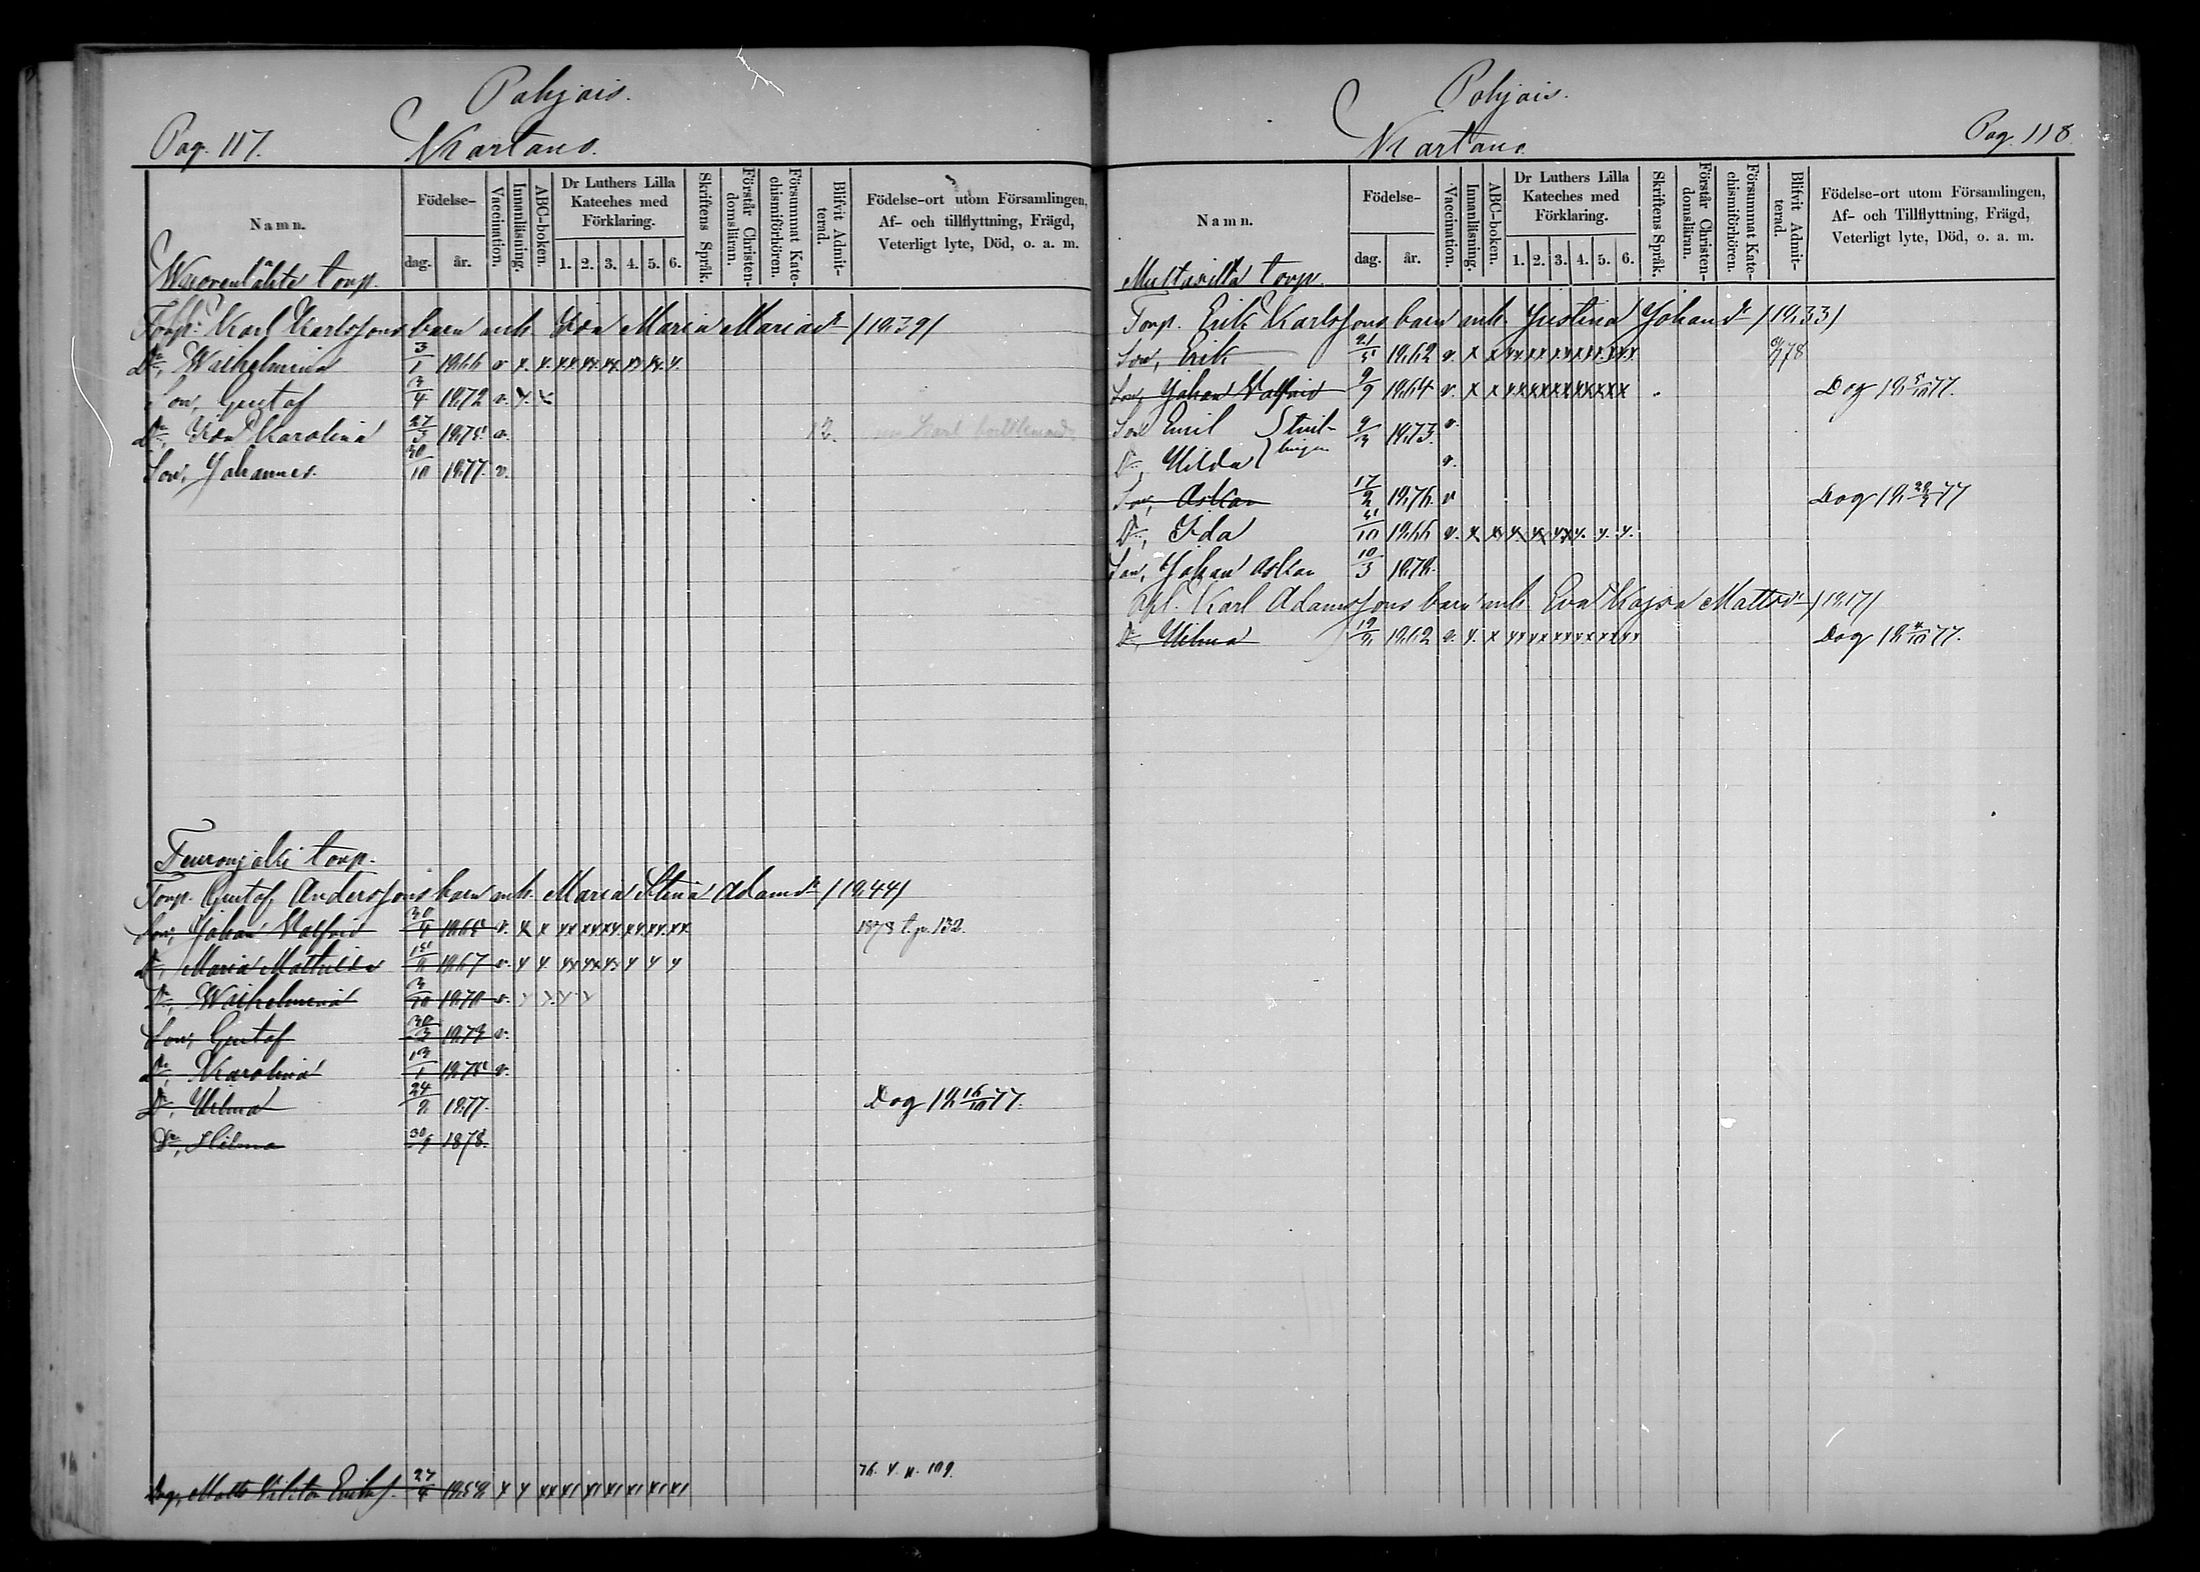 Pohjois.
Pag. 117. Kartano.
Namn. Födelse- dag. år. Vaccination. Innanläsning. ABC-boken. Dr Luthers Lilla Kateches med Förklaring. 1. 2. 3. 4. 5. 6. Skriftens Språk. Förstår Christendomsläran. Försummat Katechismiförhören. Blifvit Admitterad. Födelse-ort utom Församlingen, Af- och tillflyttning, Frägd, Veterligt lyte, Död, o. a. m.
torp.
Torp. Karl Karlssons barn mh. Ida Maria Mariadr /1839/
Dr, Wilhelmina 3/1 1866 v x. x. xx xx. xx. xx xx. x.
Son, Gustaf 3/4 1872 v. x. x
Dr, Ida Karolina 27/3 1875. v.
Son, Johannes 30/10 1877. v.
torp.
Torp. Gustaf Anderssons barn mh. Maria Stina Adamdr /1844/
Son, Johan Valfrid 30/4 1865 v. x x xx xx xx xx xx xx 1878 t. p. 132.
Dr, Maria Mathilda 15/2 1867 v. x x xx xx xx x x x
Dr, Wilhelmina 3/10 1870 v. x x x x
Son, Gustaf 30/3 1873 v.
Dr, Karolina 13/1 1875 v.
Dr, Hilma 24/2 1877. Dog 18 16/10 77.
Dr, Hilma 30/9 1878.
Matts Viktor Erikss. 27/4 1858 x x xx x1 x1 x1 x1 x1 x1 76. p. 109.
Pohjois.
Kartano Pag. 118
Namn. Födelse- dag. år. Vaccination. Innanläsning. ABC-boken. Dr Luthers Lilla Kateches med Förklaring. 1. 2. 3. 4. 5. 6. Skriftens Språk. Förstår Christendomsläran. Försummat Katechismiförhören. Blifvit Admitterad. Födelse-ort utom Församlingen, Af- och Tillflyttning, Frägd, Veterligt lyte, Död, o. a. m.
Multasilta torp.
Torp. Erik Karlssons barn mh. Justina Johandr /1833/
Son, Erik 21/5 1862 v. x x xx xx xx xx xx xx 78
Son, Johan Valfrid 9/9 1864 v. x x xx xx xx xx xx xx Dog 18 5/10 77.
Son Emil } tvil- 9/3 1873. v.
Dr, Hilda } lingar v.
Son, Oskar 17/2 1876. v Dog 18 22/2 77
Dr, Ida 5/10 1866 v. x x x. x xx x. x. x.
Son, Johan Oskar 10/3 1878.
Karl Adamssons barn mh. Eva Kajsa Mattsdr /1817/
Dr, Hilma 12/2 1862 v. x. x xx xx xx xx xx xx Dog 18 4/10 77.